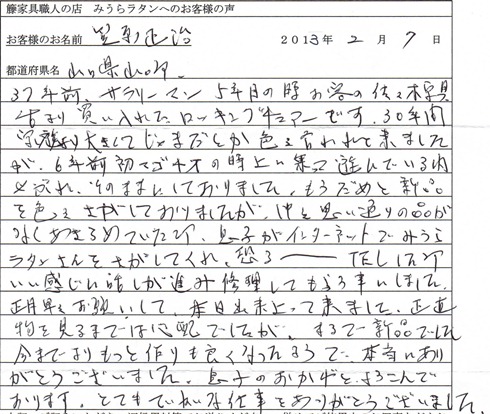 籐家具職人の店 みうらラタンへのお客様の声
お客様のお名前 正治 2013年2月7日
都道府県名 山口県山口市
37年前サラリーマン5年目の時お客の佐々木写具
店より買い入れたロッキングチェアーです。30年間
家族より大きくてじゃまだとか色々言われて来ました
が、6年前初マゴチオの時上に乗って遊んでいる内
こわれ、そのままにしておりました。もうだめと新品
を色々さがしておりましたが、中々思い通りの品が
なくあきらめていた所、息子がインターネットでみうら
ラタンさんをさがしてくれ、恐る TELした所
いい感じに話しが進み修理してもらう事にしました。
正月早々お願いして、本日出来上って来ました。正直
物を見るまでは心配でしたが、まるで新品でした
今までよりもっと作りも良くなったようで、本当にあり
がとうございました。息子のおかげとよろこんで
おります。とてもていねいな仕事をありがとうございました。